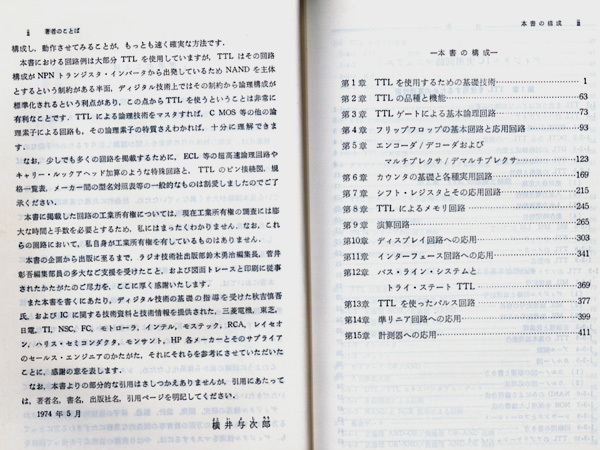 ii 著者のことば
構成し、動作させてみることが、もっとも速く確実な方法です．
本書における回路例は大部分 TTL を使用していますが，TTL はその回路
構成が NPN トランジスタ・インバータから出発しているため NAND を主体
とするという制約がある半面，ディジタル技術上ではその制約から論理構成が
標準化されるという利点があり，この点から TTL を使うということは非常に
有利なことです．TTL による論理技術をマスタすれば，C MOS 等の他の論
理素子による回路も，その論理素子の特質さえわかれば，十分に理解できま
す．
なお，少しでも多くの回路を掲載するために，ECL 等の超高速論理回路や
キャリー・ルックアヘッド加算のような特殊回路と，TTL のピン接続図，規
格一覧表，メーカー間の型名対照表等の一般的なものは割愛しましたのでご了
承ください．
本書に掲載した回路の工業所有権については，現在工業所有権の調査には膨
大な時間と手数を必要とするため，私にはまったくわかりません．なお，これ
らの回路において，私自身が工業所有権を有しているものはありません．
本書の企画から出版に至るまで，ラジオ技術社出版部鈴木勇治編集長，菅井
彰吾編集部員の多大なご支援を受けたこと，および図面トレースと印刷に従事
されたかたがたのご尽力を，ここに厚く感謝いたします．
また本書を書くにあたり，ディジタル技術の基礎の指導を受けた秋吉慎吾
氏，および IC に関する技術資料と技術情報を提供された，三菱電機，東芝，
日電，TI，NSC，FC，モトローラ，インテル，モステック，RCA，レイセオ
ン，ハリス・セミコンダクタ，モンサント，HP 各メーカーとそのサプライア
のセールス・エンジニアのかたがた，それにそれらを参考にさせていただいた
ことに，感謝の意を表します．
なお，本書よりの部分的な引用はさしつかえありませんが，引用にあたって
は，著者名，書名，出版社名，引用ページを明記してください．
1974 年 5 月
横井与次郎
本書の構成 iii
―本書の構成―
第1章 TTL を使用するための基礎技術……1
第2章 TTL の品種と機能……63
第3章 TTL ゲートによる基本論理回路……73
第4章 フリップフロップの基本回路と応用回路……93
第5章 エンコーダ/デコーダおよび
マルチプレクサ/デマルチプレクサ……123
第6章 カウンタの基礎と各種実用回路……169
第7章 シフト・レジスタとその応用回路……215
第8章 TTL によるメモリ回路……245
第9章 演算回路……265
第10章 ディスプレイ回路への応用……303
第11章 インターフェース回路への応用……341
第12章 バス・ライン・システムと
トライ・ステート TTL……369
第13章 TTL を使ったパルス回路……377
第14章 準リニア回路への応用……399
第15章 計測器への応用……411